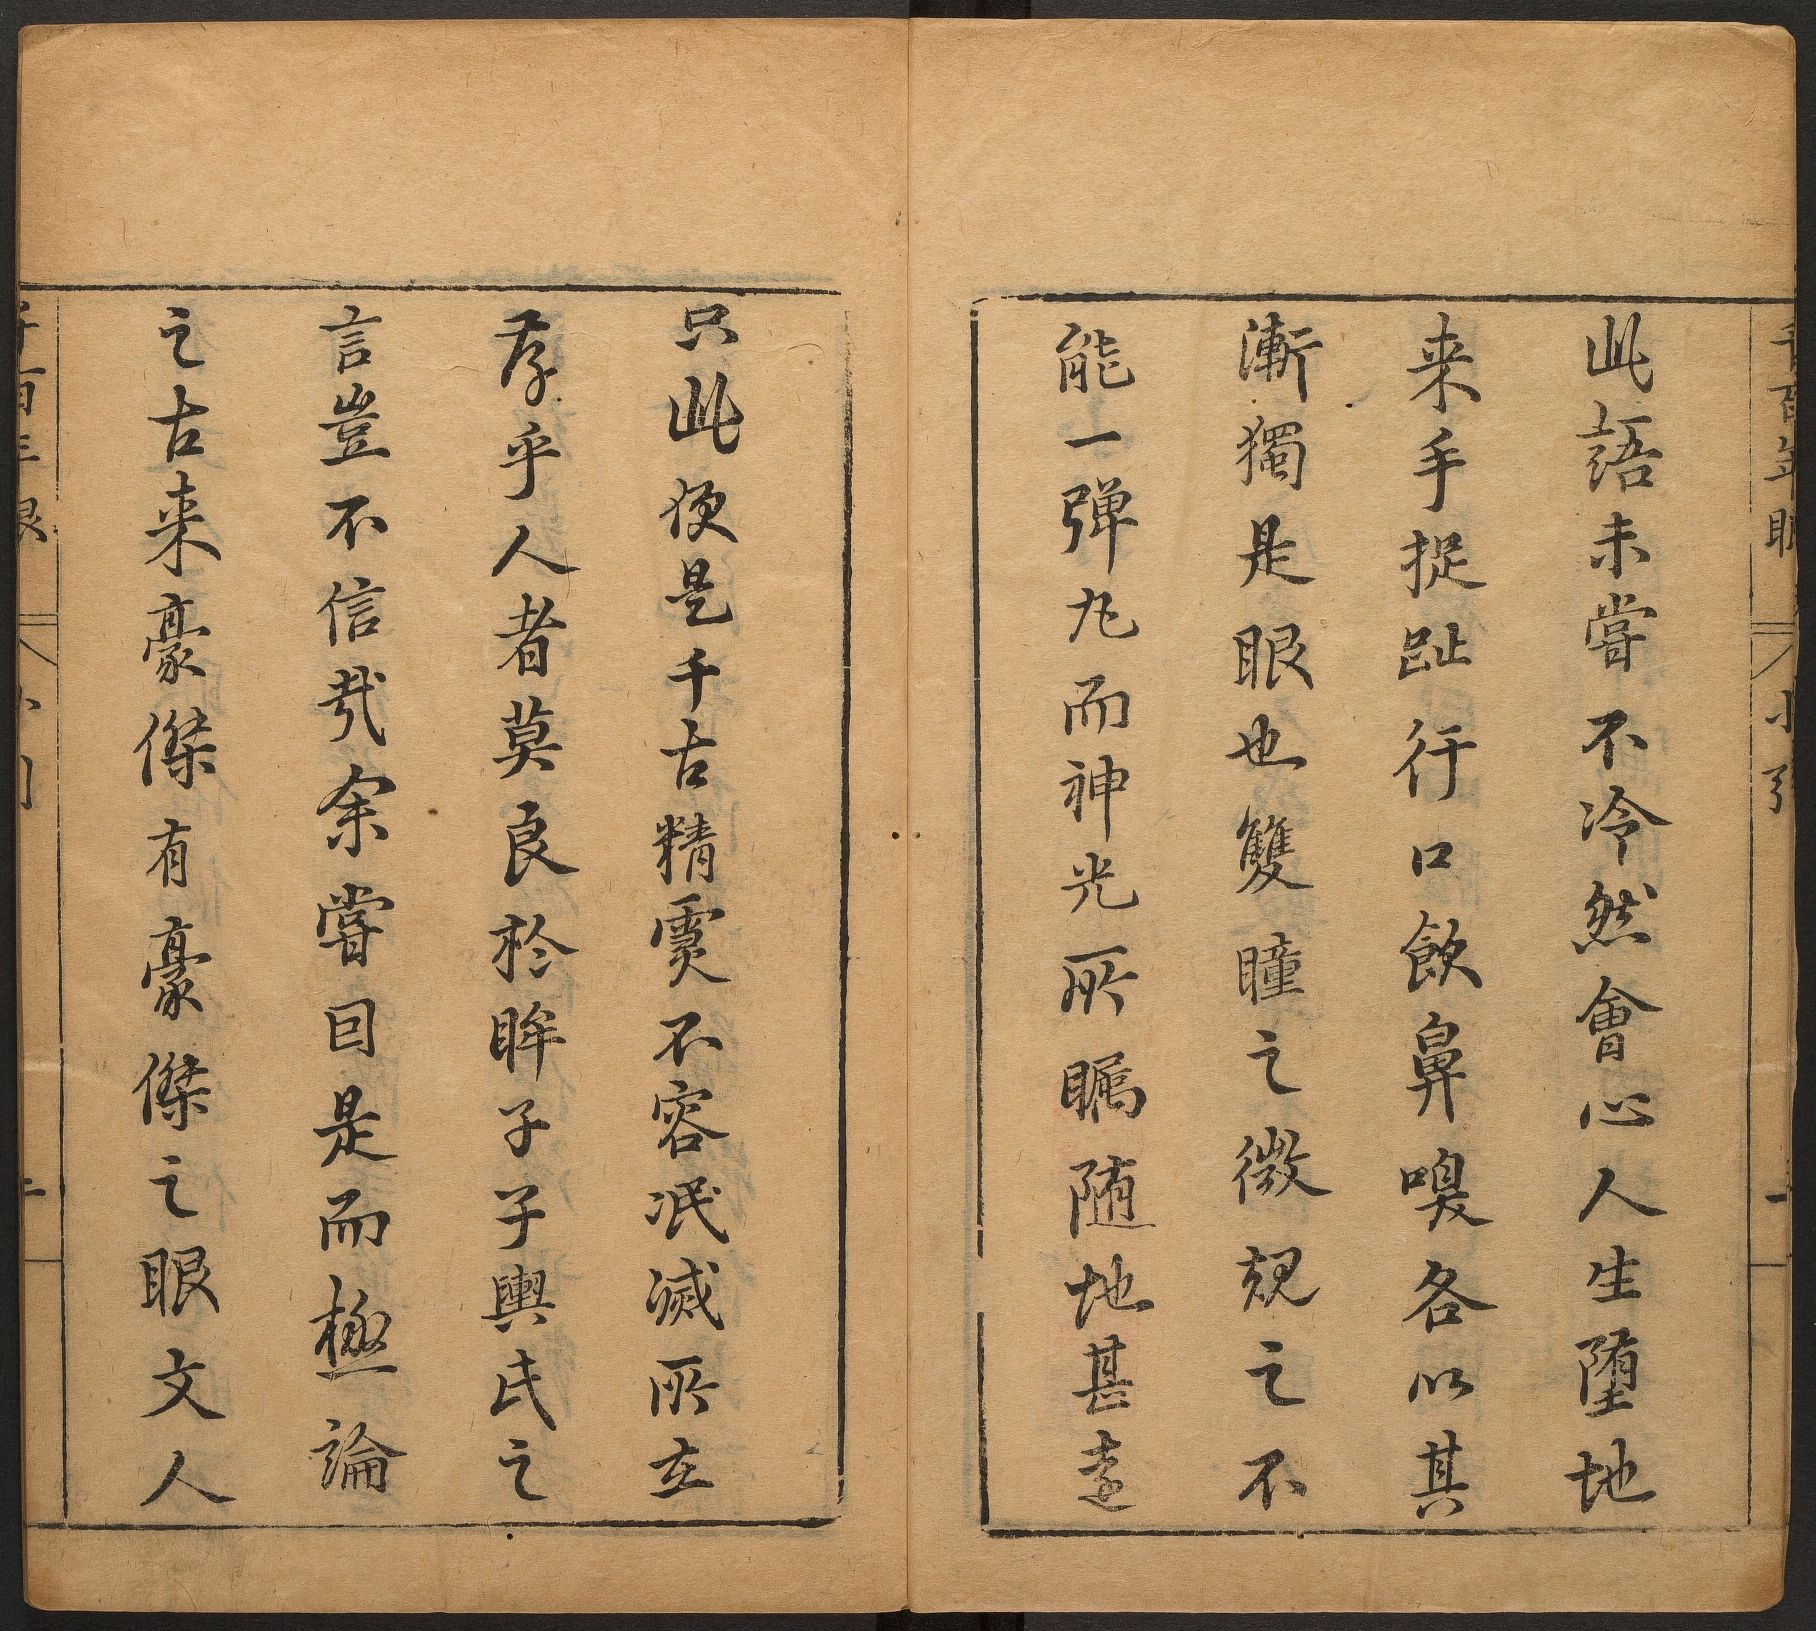 千百年眼 小引 一
此語未嘗不冷然會心人生墮地
来手捉趾行口飲鼻嗅各以其
漸獨是眼也雙瞳之微規之不
能一弹丸而神光所矚随地甚遠
只此便是千古精靈不容泯滅所立
存乎人者莫良於眸子子輿氏之
言豈不信哉余嘗因是而極論
之古来豪傑有豪傑之眼文人
千百年眼 小引